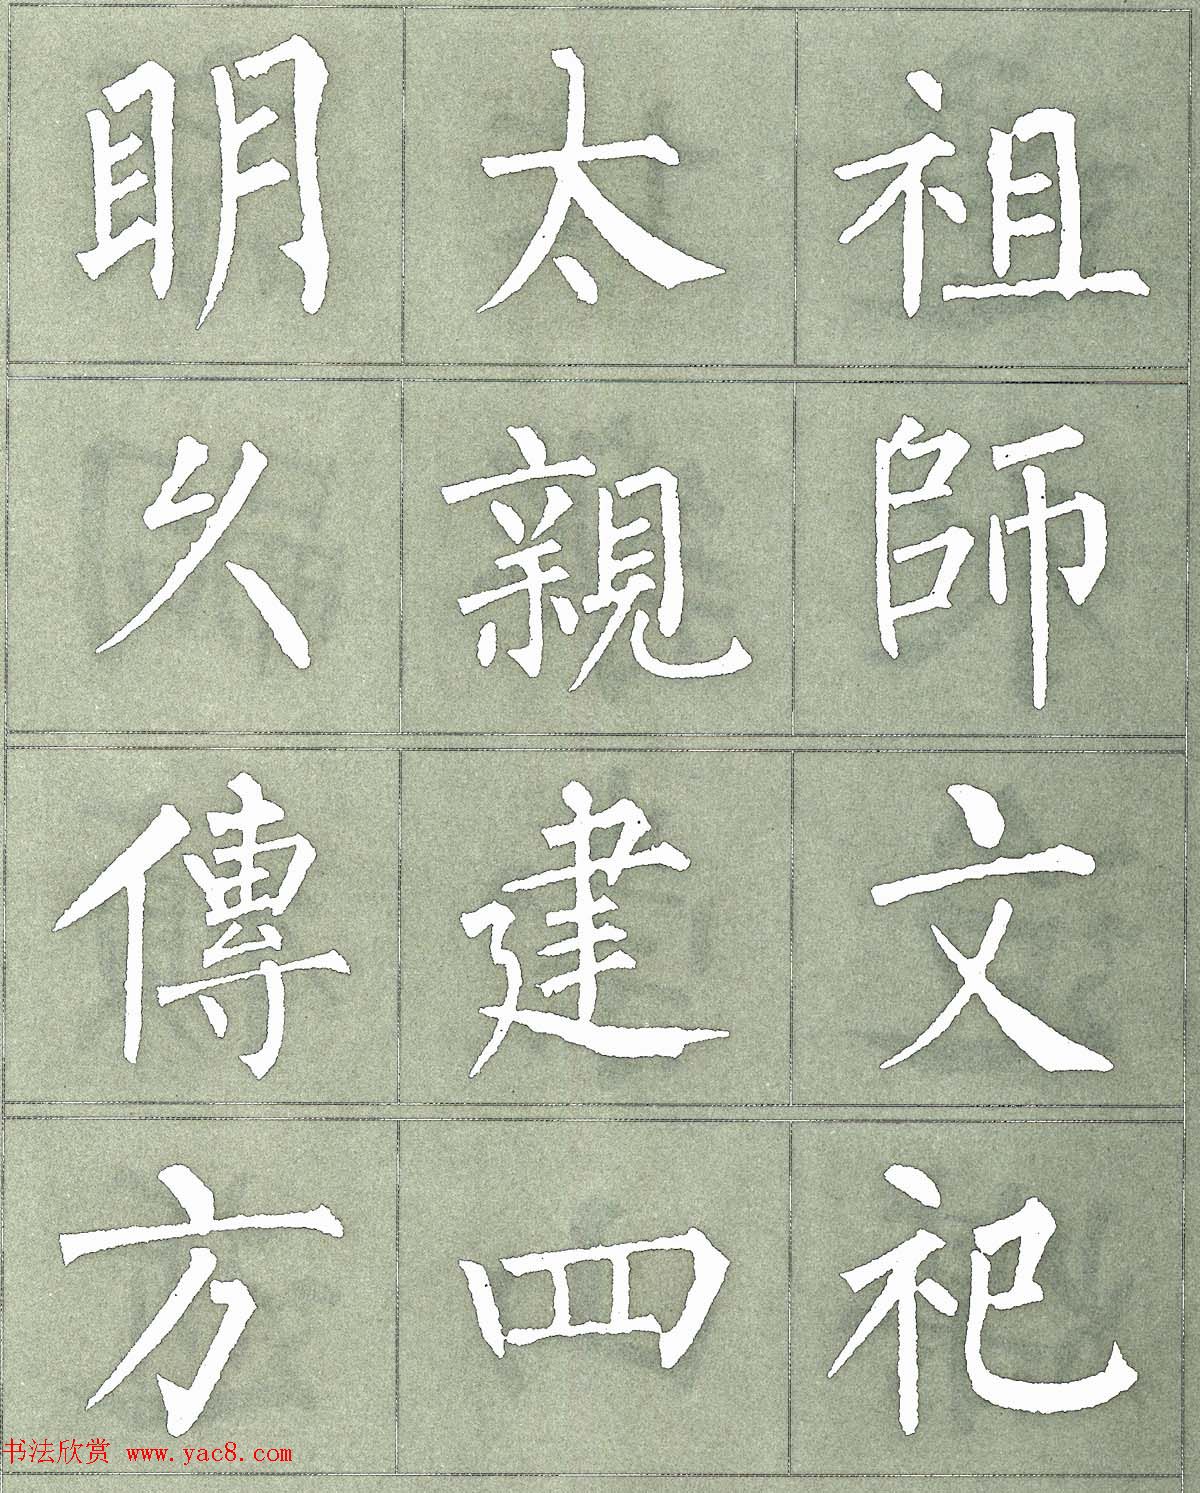 明太祖
久親師
傳建文
方四祀
书法欣赏 www.yac8.com